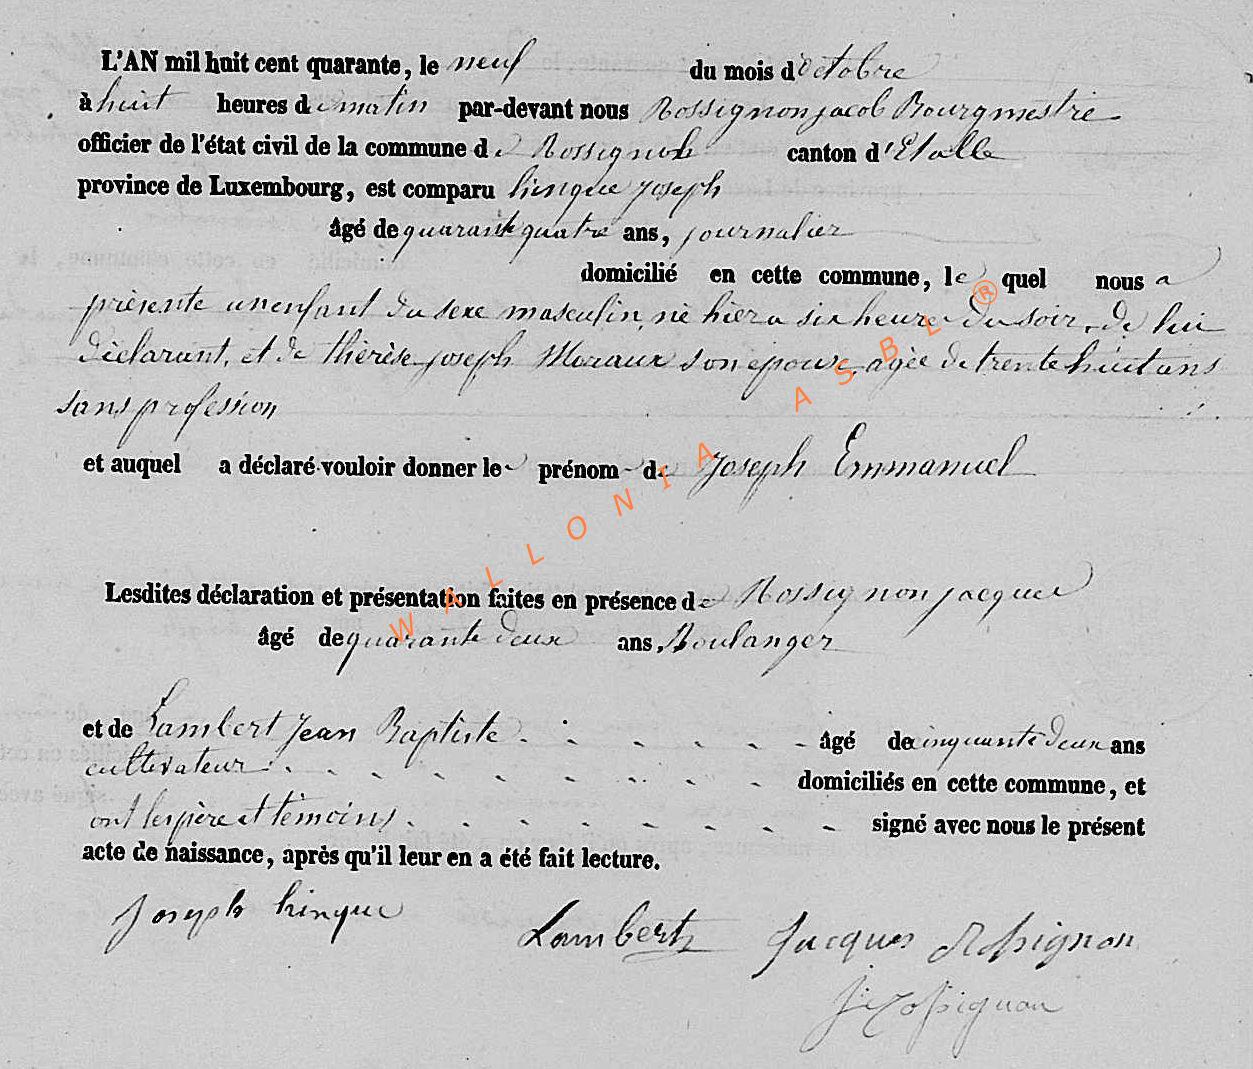 L'AN mil huit cent quarante, le neuf du mois d'octobre
à huit heures du matin par-devant nous Rossignon jacob Bourgmestre
officier de l'état civil de la commune de Rossignol canton d'Etalle
province de Luxembourg, est comparu hinque Joseph
âgé de quarante quatre ans, journalier
domicilié en cette commune, le quel nous a
présenté un enfant du sexe masculin, né hier a six heures du soir, de lui
déclarant, et de thérèse joseph Moraux son épouse, agée de trente huit ans
sans profession
et auquel a déclaré vouloir donner le prénom de Joseph Emmanuel
Lesdites déclaration et présentation faites en présence de Rossignon jacques
âgé de quarante deux ans, Boulanger
et de Lambert Jean Baptiste âgé de cinquante deux ans
cultivateur domiciliés en cette commune, et
ont les père et témoins signé avec nous le présent
acte de naissance, après qu'il leur en a été fait lecture.
Joseph hinque
Lambert Jacques Rossignon
J Rossignon
WALLONIA ASBL ®